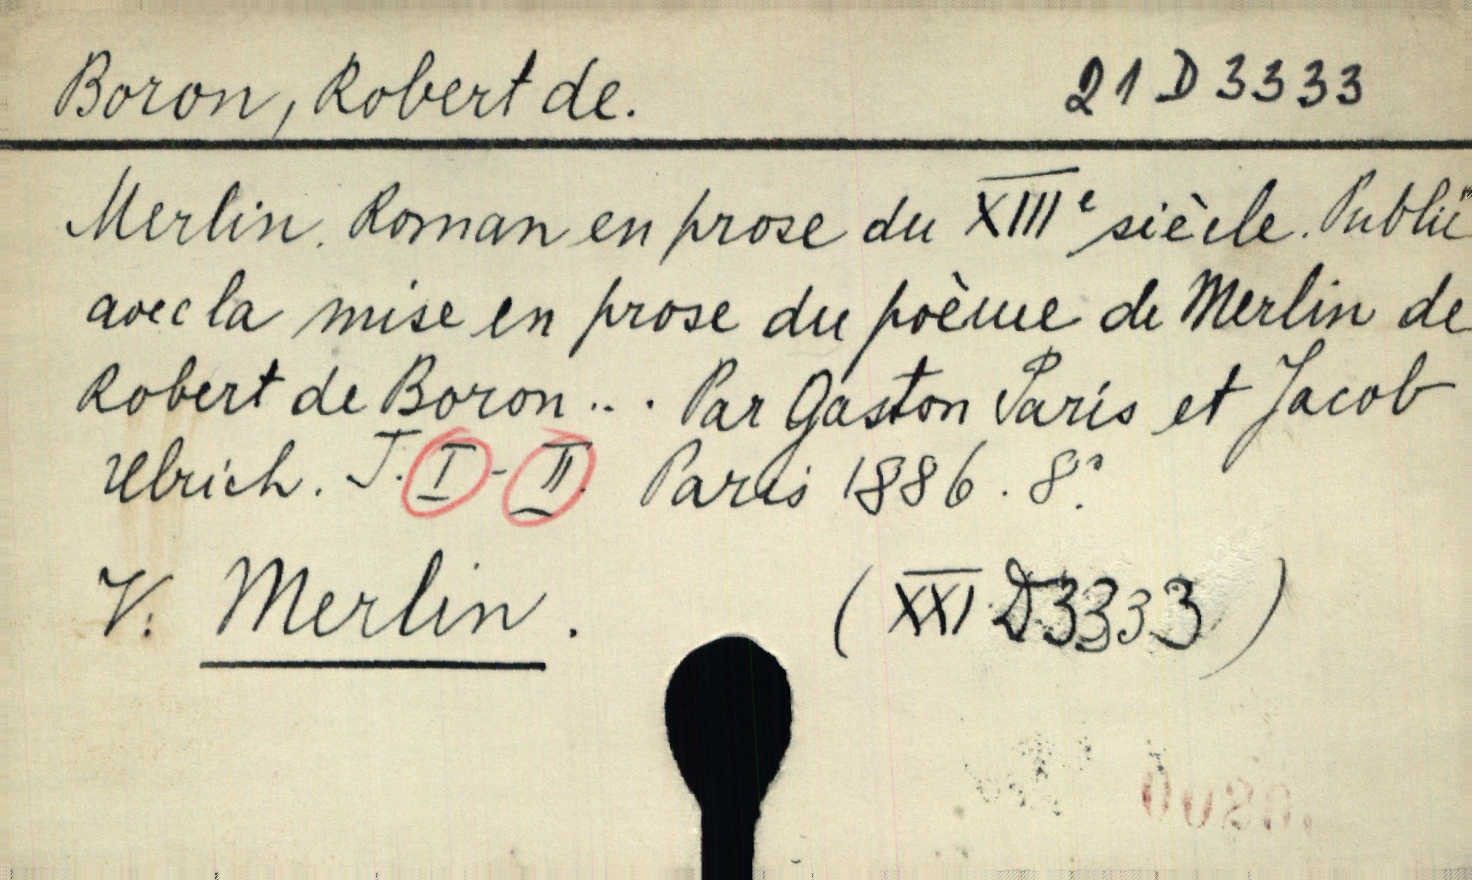 Boron, Robert de. 21 D 3333
Merlin. Roman en prose du XIIIe siècle. Publié
avec la mise en prose du poème de Merlin de
Robert de Boron... Par Gaston Paris et Jacob
Ulrich. T. I - II. Paris 1886. 8°.
V. Merlin. (XXI D 3333)